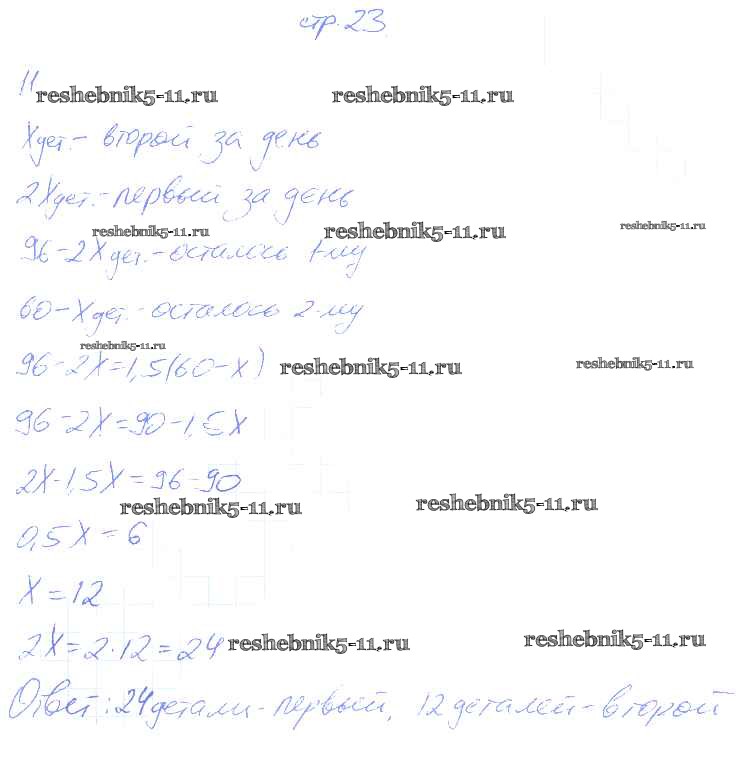 стр. 23.
11
reshebnik5-11.ru reshebnik5-11.ru
Xдет.- второй за день
2Xдет.-первый за день
reshebnik5-11.ru reshebnik5-11.ru reshebnik5-11.ru
96-2Xдет.-осталось 1-му
60-Xдет.-осталось 2-му
reshebnik5-11.ru
96-2X=1,5(60-X) reshebnik5-11.ru reshebnik5-11.ru
96-2X=90-1,5X
2X-1,5X=96-90
reshebnik5-11.ru reshebnik5-11.ru
0,5X=6
X=12
2X=2·12=24 reshebnik5-11.ru reshebnik5-11.ru
Ответ: 24детали-первый, 12деталей-второй